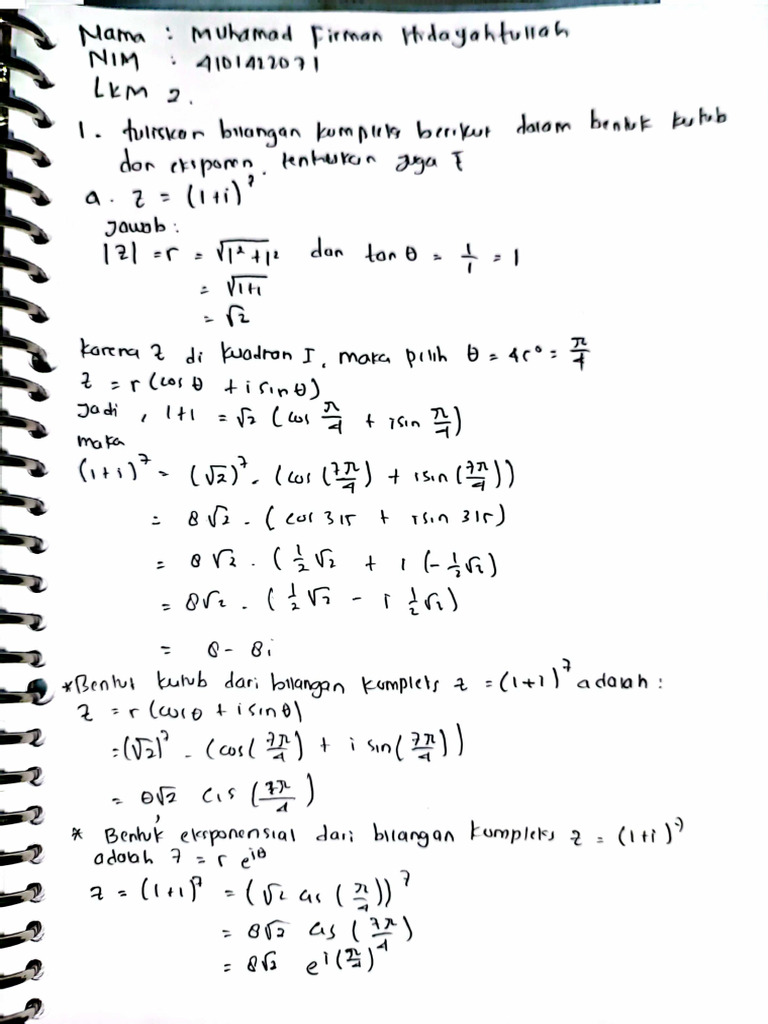 Nama : Muhamad Firman Hidayahtullah
NIM : 4101422071
LKM 2.
1. tuliskan bilangan kompleks berikut dalam bentuk kutub
dan eksponen. tentukan juga z̄
a. z = (1+i)⁷
Jawab :
|z| = r = √1²+1² dan tan θ = 1/1 = 1
= √1+1
= √2
karena z di kuadran I, maka pilih θ = 45° = π/4
z = r (cos θ + i sin θ)
Jadi , 1+i = √2 (cos π/4 + i sin π/4)
maka
(1+i)⁷ = (√2)⁷ . (cos (7π/4) + i sin (7π/4))
= 8√2 . (cos 315 + i sin 315)
= 8√2 . (1/2 √2 + i (-1/2 √2)
= 8√2 . (1/2 √2 - i 1/2 √2)
= 8 - 8i
*Bentuk kutub dari bilangan kompleks z = (1+i)⁷ adalah :
z = r (cos θ + i sin θ)
= (√2)⁷ . (cos( 7π/4 ) + i sin( 7π/4 ))
= 8√2 cis ( 7π/4 )
* Bentuk eksponensial dari bilangan kompleks z = (1+i)⁷
adalah z = r e^iθ
z = (1+i)⁷ = (√2 cis ( π/4 ))⁷
= 8√2 cis ( 7π/4 )
= 8√2 e^i(7π/4)